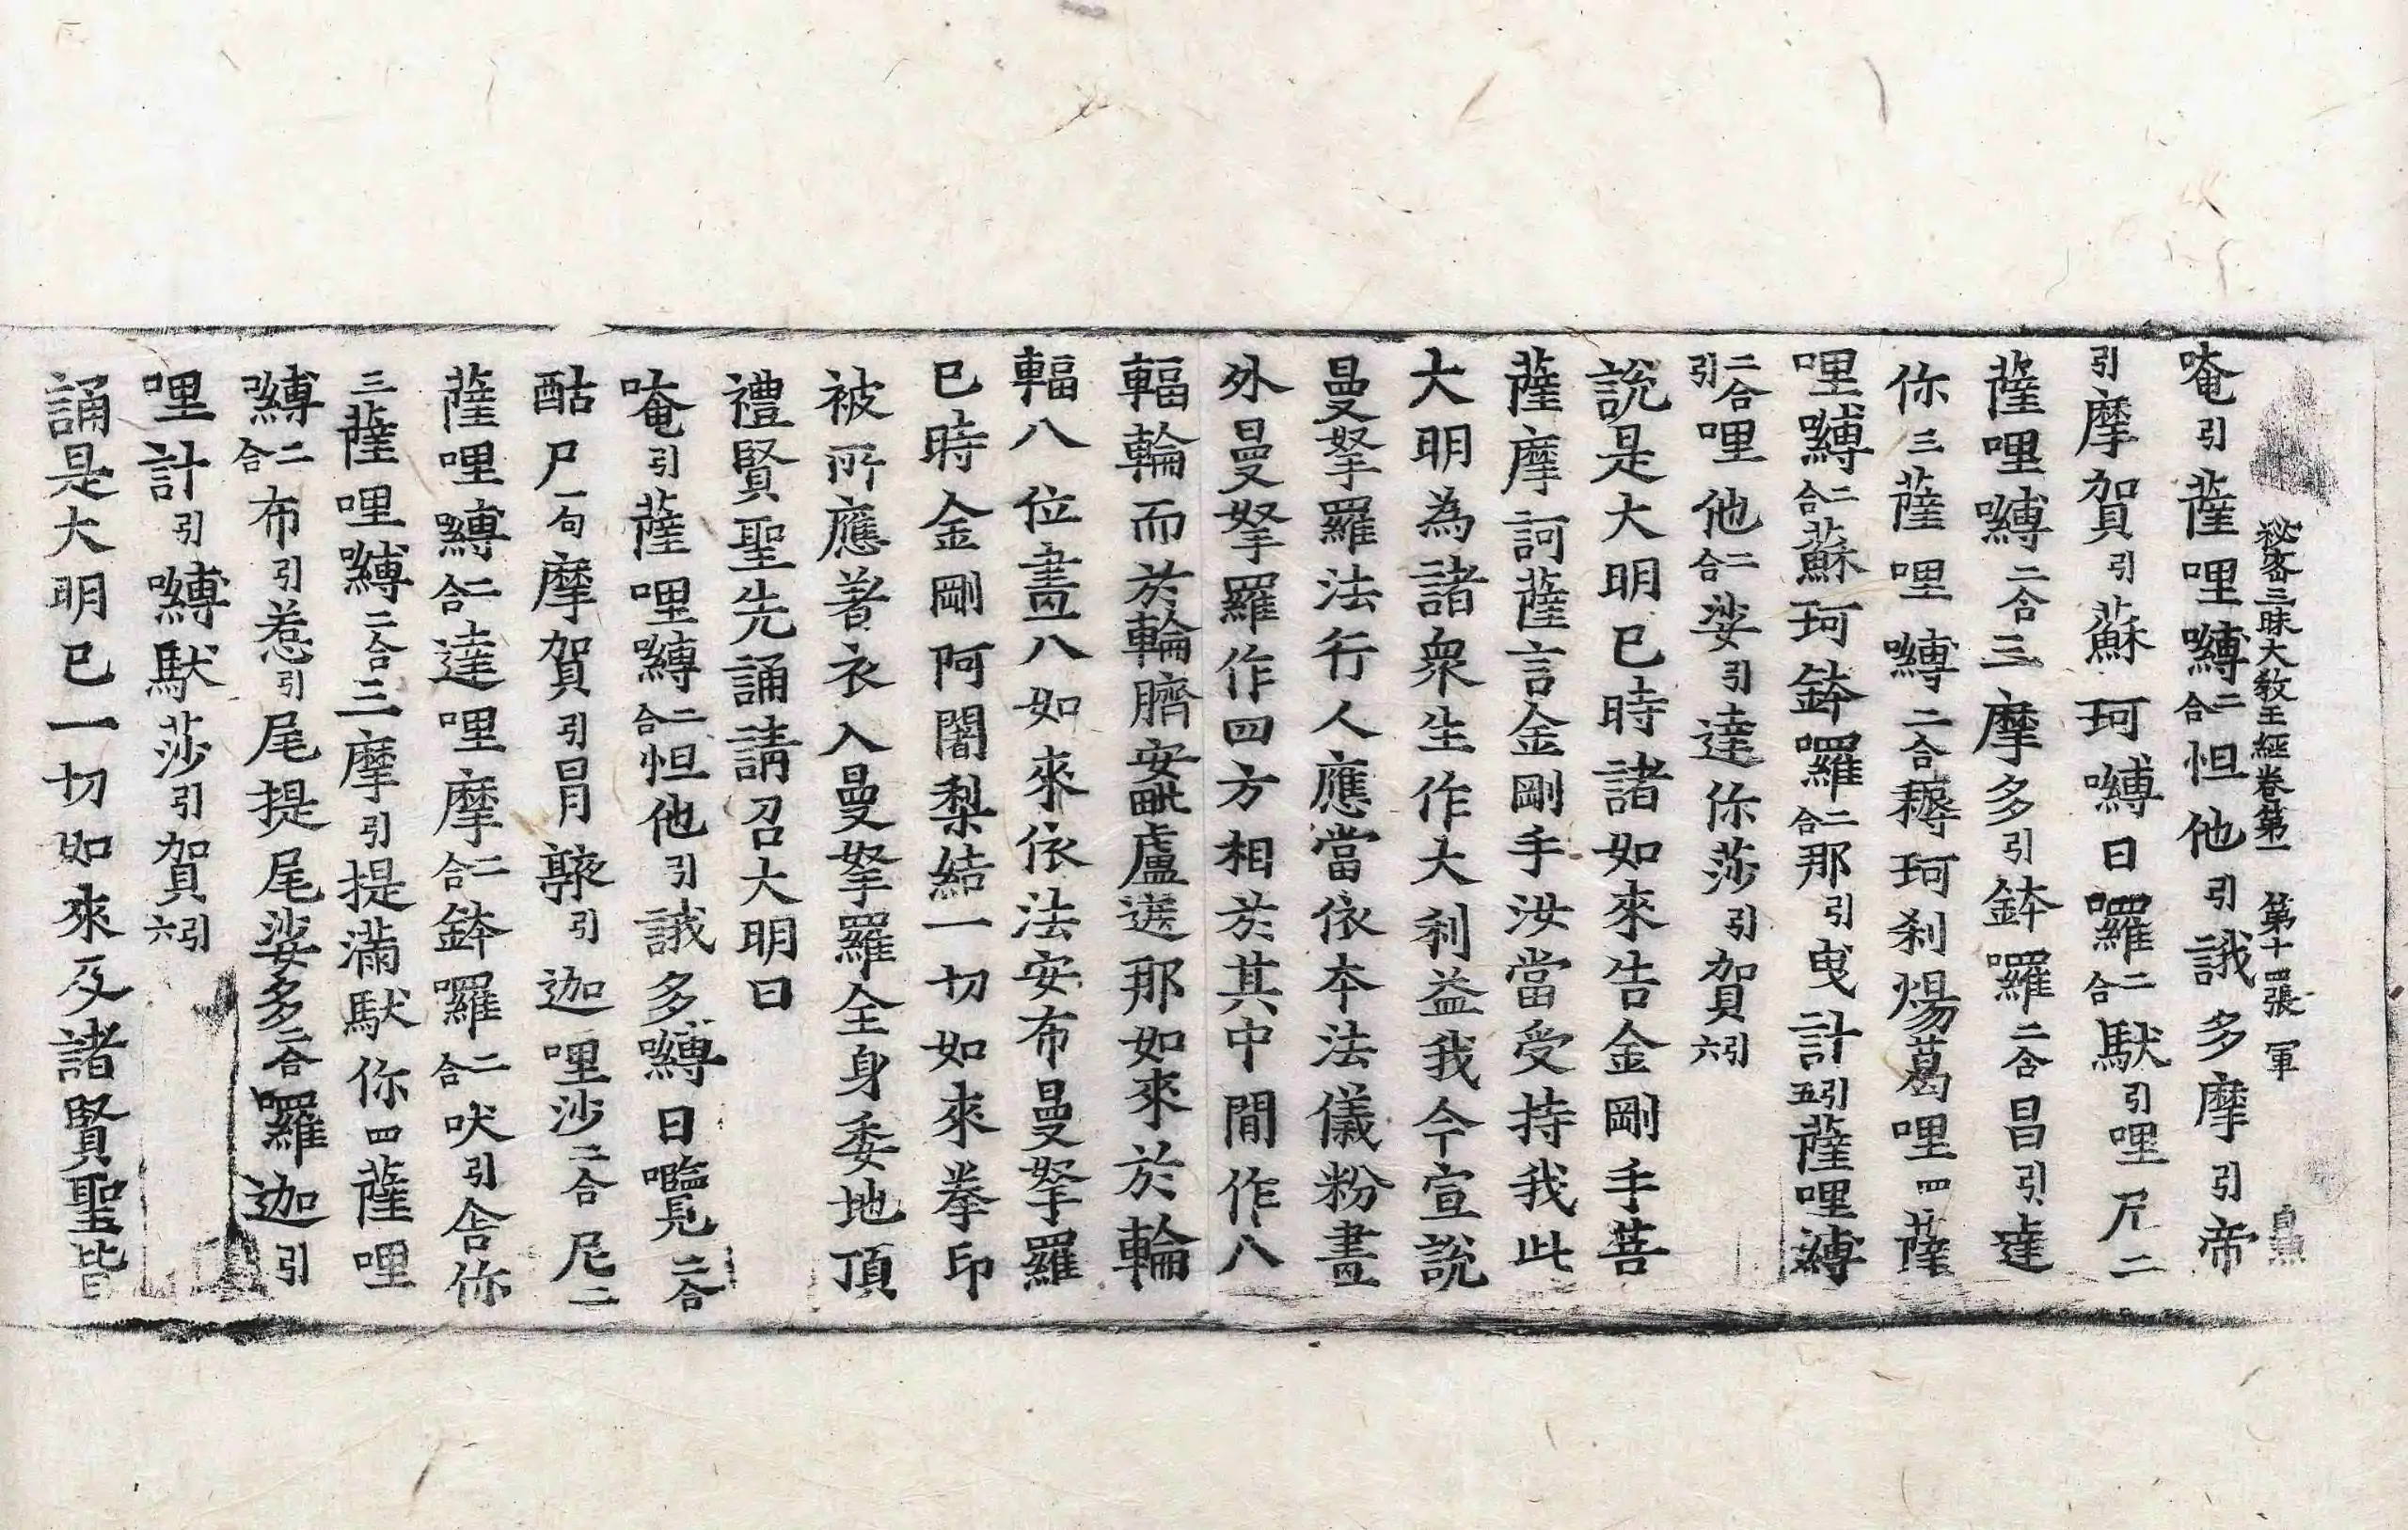 秘密三昧大教王經卷第一 第十四張 軍
唵引薩哩嚩二合怛他引誐多摩引帝
引摩賀引蘇珂嚩日囉二合馱引哩尼二
薩哩嚩二合三摩多引鉢囉二合昌引達
你三薩哩嚩二合耨珂刹煬葛哩四薩
哩嚩二合蘇珂鉢囉二合那引曳計引五薩哩嚩
二合引哩他二合娑引達你莎引賀引六
說是大明已時諸如來告金剛手菩
薩摩訶薩言金剛手汝當受持我此
大明為諸衆生作大利益我今宣說
曼拏羅法行人應當依本法儀粉畫
外曼拏羅作四方相於其中間作八
輻輪而於輪臍安毗盧遮那如來於輪
輻八位畫八如來依法安布曼拏羅
已時金剛阿闍梨結一切如來拳印
被所應著衣入曼拏羅全身委地頂
禮賢聖先誦請召大明曰
唵引薩哩嚩二合怛他引誐多嚩日囕二合
酤尸一句摩賀引冐𨄔引迦哩沙二合尼二
薩哩嚩二合達哩摩二合鉢囉二合吠引舍你
三薩哩嚩二合三摩引提滿馱你四薩哩
嚩二合布引惹引尾提尾娑多二合囉迦引
哩計引嚩馱莎引賀引六
誦是大明已一切如來及諸賢聖皆